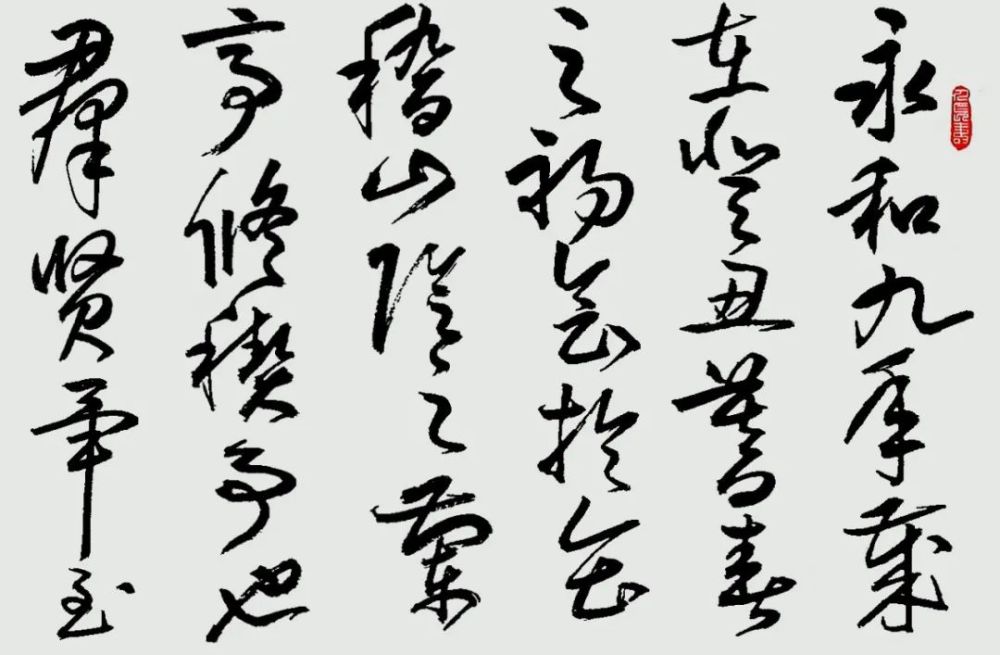 永和九年歲
在癸丑暮春
之初會於會
稽山陰之蘭
亭修禊事也
群賢畢至